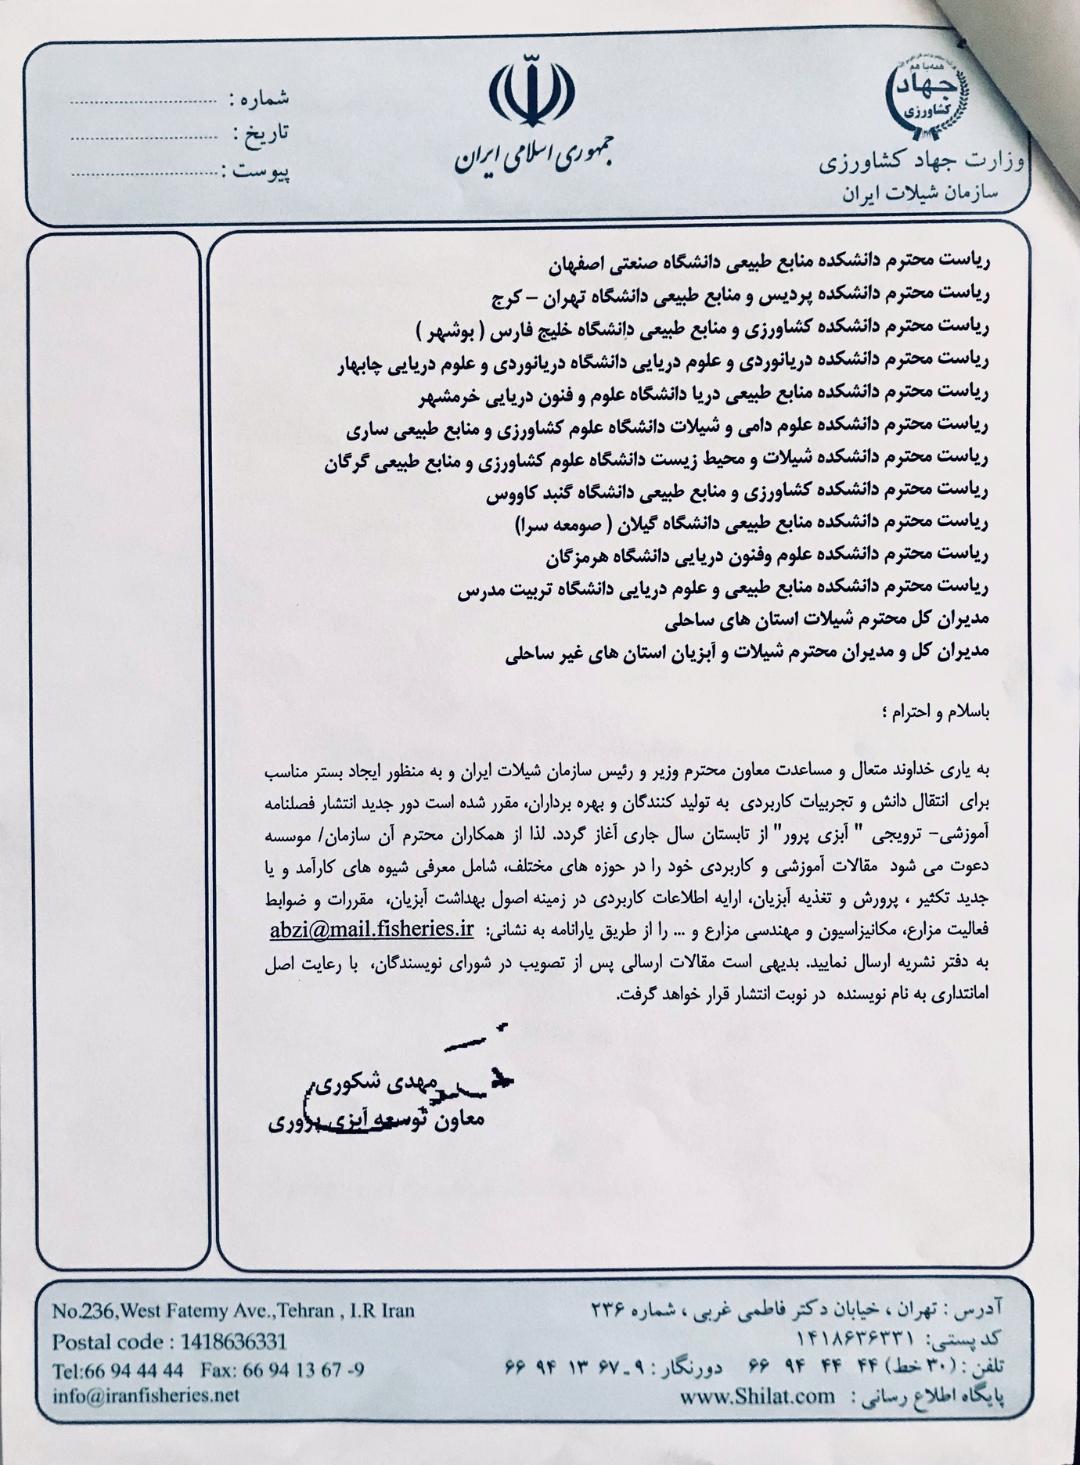 همه با هم
جهاد
کشاورزی
وزارت جهاد کشاورزی
سازمان شیلات ایران
جمهوری اسلامی ایران
شماره :
تاریخ :
پیوست :
ریاست محترم دانشکده منابع طبیعی دانشگاه صنعتی اصفهان
ریاست محترم دانشکده پردیس و منابع طبیعی دانشگاه تهران – کرج
ریاست محترم دانشکده کشاورزی و منابع طبیعی دانشگاه خلیج فارس ( بوشهر )
ریاست محترم دانشکده دریانوردی و علوم دریایی دانشگاه دریانوردی و علوم دریایی چابهار
ریاست محترم دانشکده منابع طبیعی دریا دانشگاه علوم و فنون دریایی خرمشهر
ریاست محترم دانشکده علوم دامی و شیلات دانشگاه علوم کشاورزی و منابع طبیعی ساری
ریاست محترم دانشکده شیلات و محیط زیست دانشگاه علوم کشاورزی و منابع طبیعی گرگان
ریاست محترم دانشکده کشاورزی و منابع طبیعی دانشگاه گنبد کاووس
ریاست محترم دانشکده منابع طبیعی دانشگاه گیلان ( صومعه سرا)
ریاست محترم دانشکده علوم وفنون دریایی دانشگاه هرمزگان
ریاست محترم دانشکده منابع طبیعی و علوم دریایی دانشگاه تربیت مدرس
مدیران کل محترم شیلات استان های ساحلی
مدیران کل و مدیران محترم شیلات و آبزیان استان های غیر ساحلی
باسلام و احترام ؛
به یاری خداوند متعال و مساعدت معاون محترم وزیر و رئیس سازمان شیلات ایران و به منظور ایجاد بستر مناسب
برای انتقال دانش و تجربیات کاربردی به تولید کنندگان و بهره برداران، مقرر شده است دور جدید انتشار فصلنامه
آموزشی– ترویجی " آبزی پرور" از تابستان سال جاری آغاز گردد. لذا از همکاران محترم آن سازمان/ موسسه
دعوت می شود مقالات آموزشی و کاربردی خود را در حوزه های مختلف، شامل معرفی شیوه های کارآمد و یا
جدید تکثیر ، پرورش و تغذیه آبزیان، ارایه اطلاعات کاربردی در زمینه اصول بهداشت آبزیان، مقررات و ضوابط
فعالیت مزارع، مکانیزاسیون و مهندسی مزارع و ... را از طریق یارانامه به نشانی: abzi@mail.fisheries.ir
به دفتر نشریه ارسال نمایید. بدیهی است مقالات ارسالی پس از تصویب در شورای نویسندگان، با رعایت اصل
امانتداری به نام نویسنده در نوبت انتشار قرار خواهد گرفت.
مهدی شکوری
معاون توسعه آبزی پروری
آدرس : تهران ، خیابان دکتر فاطمی غربی ، شماره ۲۳۶
کد پستی: ۱۴۱۸۶۳۶۳۳۱
تلفن : (۳۰ خط) ۴۴ ۴۴ ۹۴ ۶۶ دورنگار : ۹ - ۶۷ ۱۳ ۹۴ ۶۶
پایگاه اطلاع رسانی : www.Shilat.com
No.236,West Fatemy Ave.,Tehran , I.R Iran
Postal code : 1418636331
Tel:66 94 44 44 Fax: 66 94 13 67 -9
info@iranfisheries.net